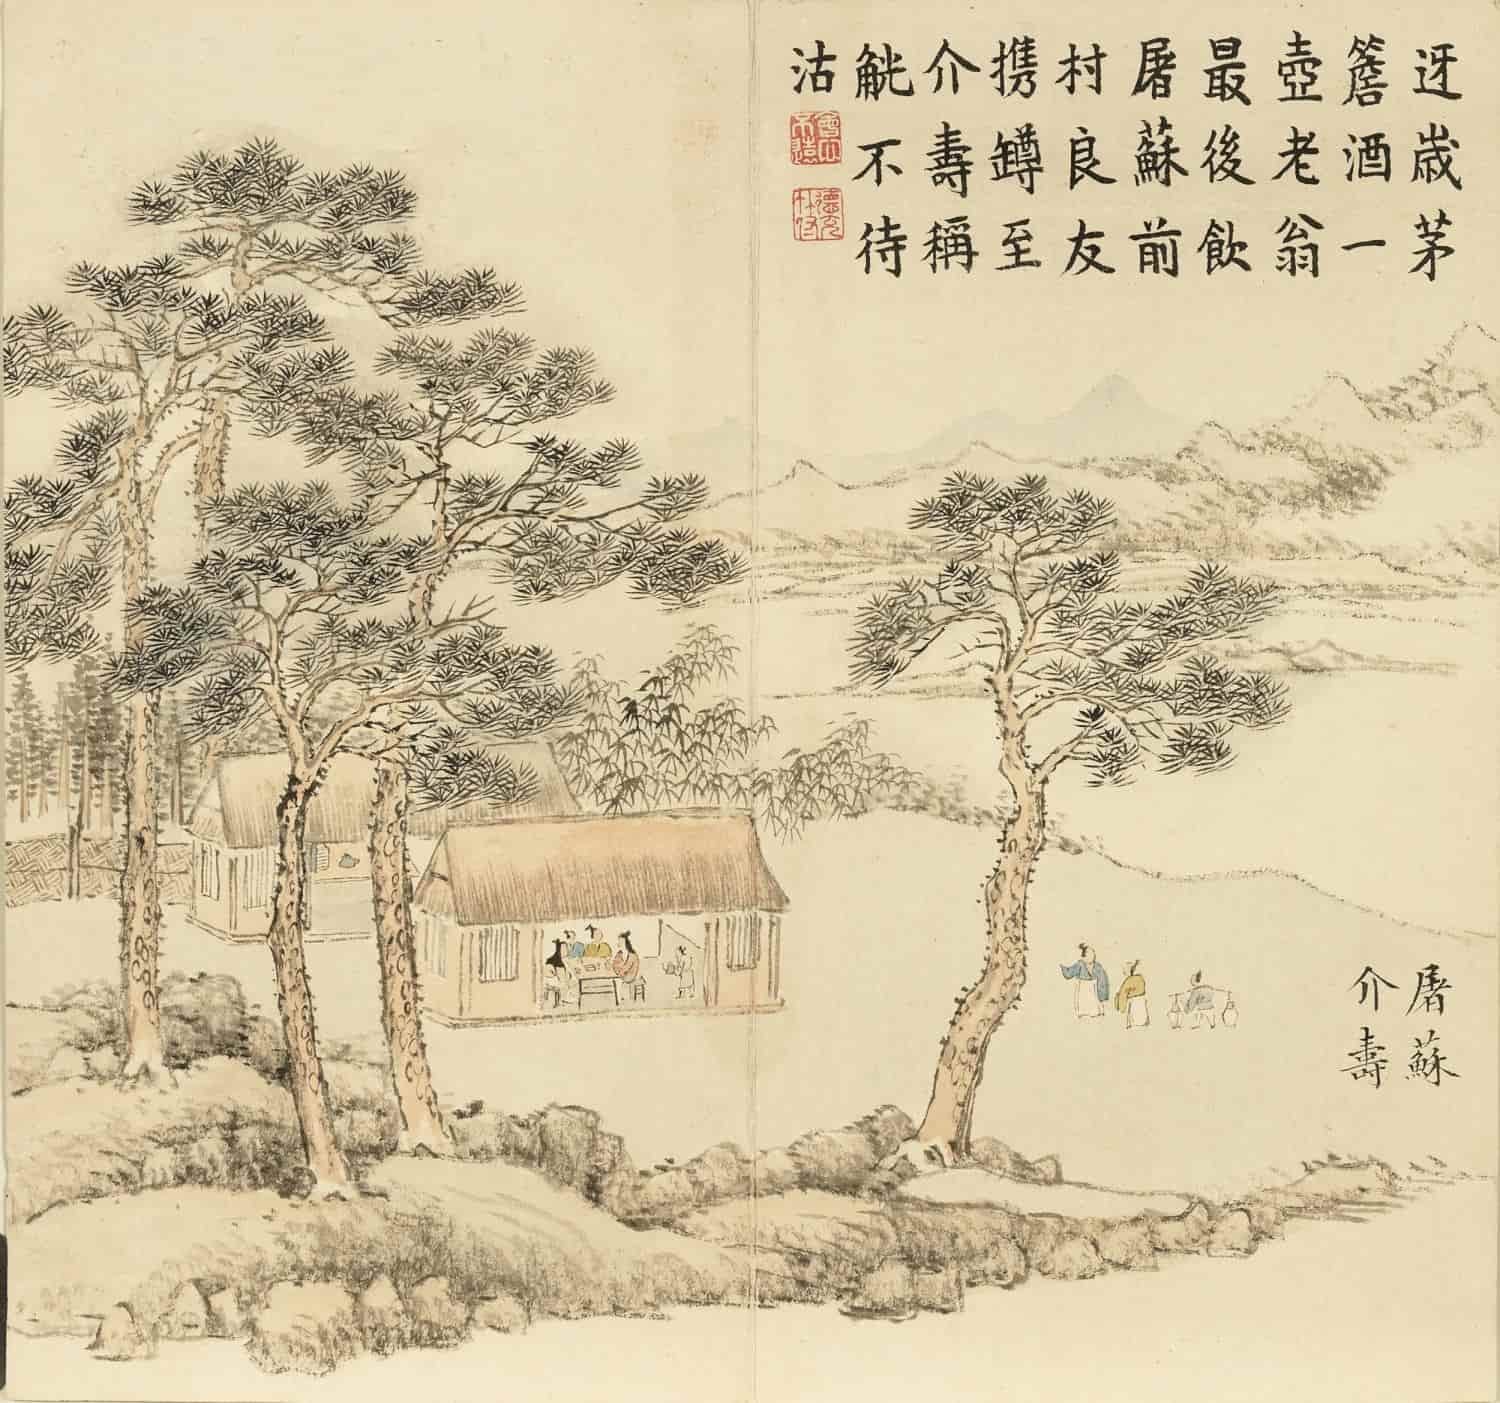 迓歲茅
簷酒一
壺老翁
最後飲
屠蘇前
村良友
携罇至
介壽稱
觥不待
沽
會心不遠
德充符
屠蘇
介壽